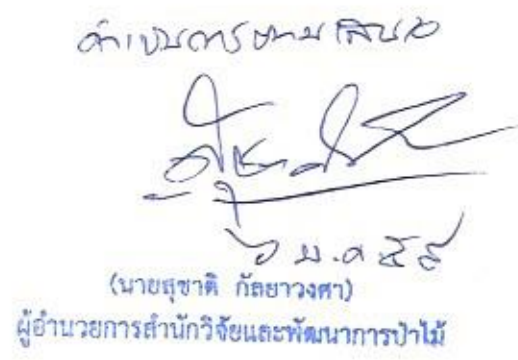 ดำเนินการตามเสนอ
๖ ม.ค ๕๙
(นายสุชาติ กัลยาวงศา)
ผู้อำนวยการสำนักวิจัยและพัฒนาการป่าไม้